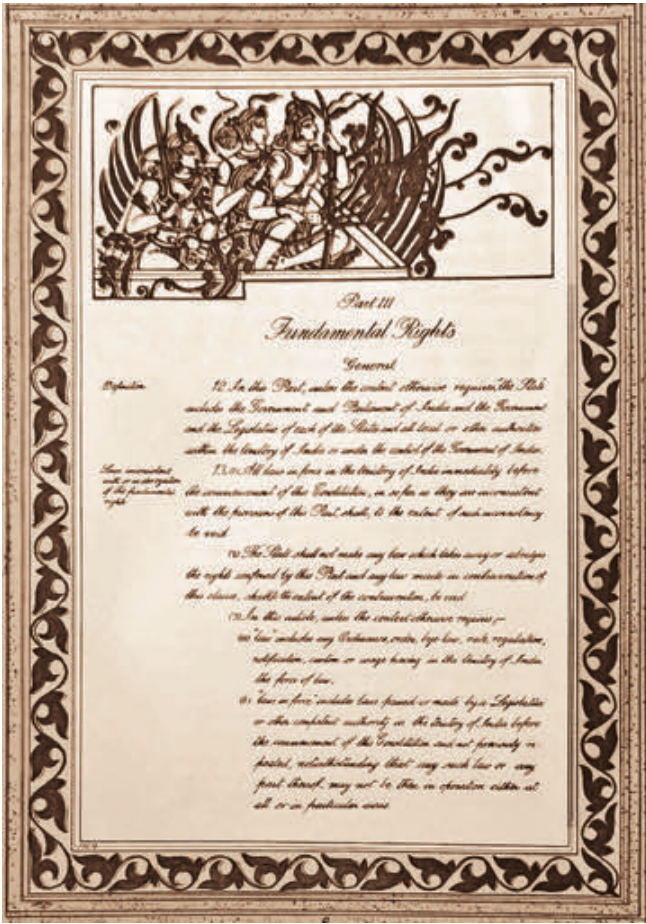 Part III
Fundamental Rights
General
Definition
12. In this Part, unless the context otherwise requires, "the State"
includes the Government and Parliament of India and the Government
and the Legislature of each of the States and all local or other authorities
within the territory of India or under the control of the Government of India.
Laws inconsistent
with or in derogation
of the fundamental
rights
13. (1) All laws in force in the territory of India immediately before
the commencement of this Constitution, in so far as they are inconsistent
with the provisions of this Part, shall, to the extent of such inconsistency
be void
(2) The State shall not make any law which takes away or abridges
the rights conferred by this Part and any law made in contravention of
this clause, shall, to the extent of the contravention, be void
(3) In this article, unless the context otherwise requires,—
(a) "law" includes any Ordinance, order, bye law, rule, regulation,
notification, custom or usage having in the territory of India
the force of law.
(b) "laws in force" includes laws passed or made by a Legislature
or other competent authority in the territory of India before
the commencement of this Constitution and not previously re-
pealed, notwithstanding that any such law or any
part thereof may not be then in operation either at
all or in particular areas